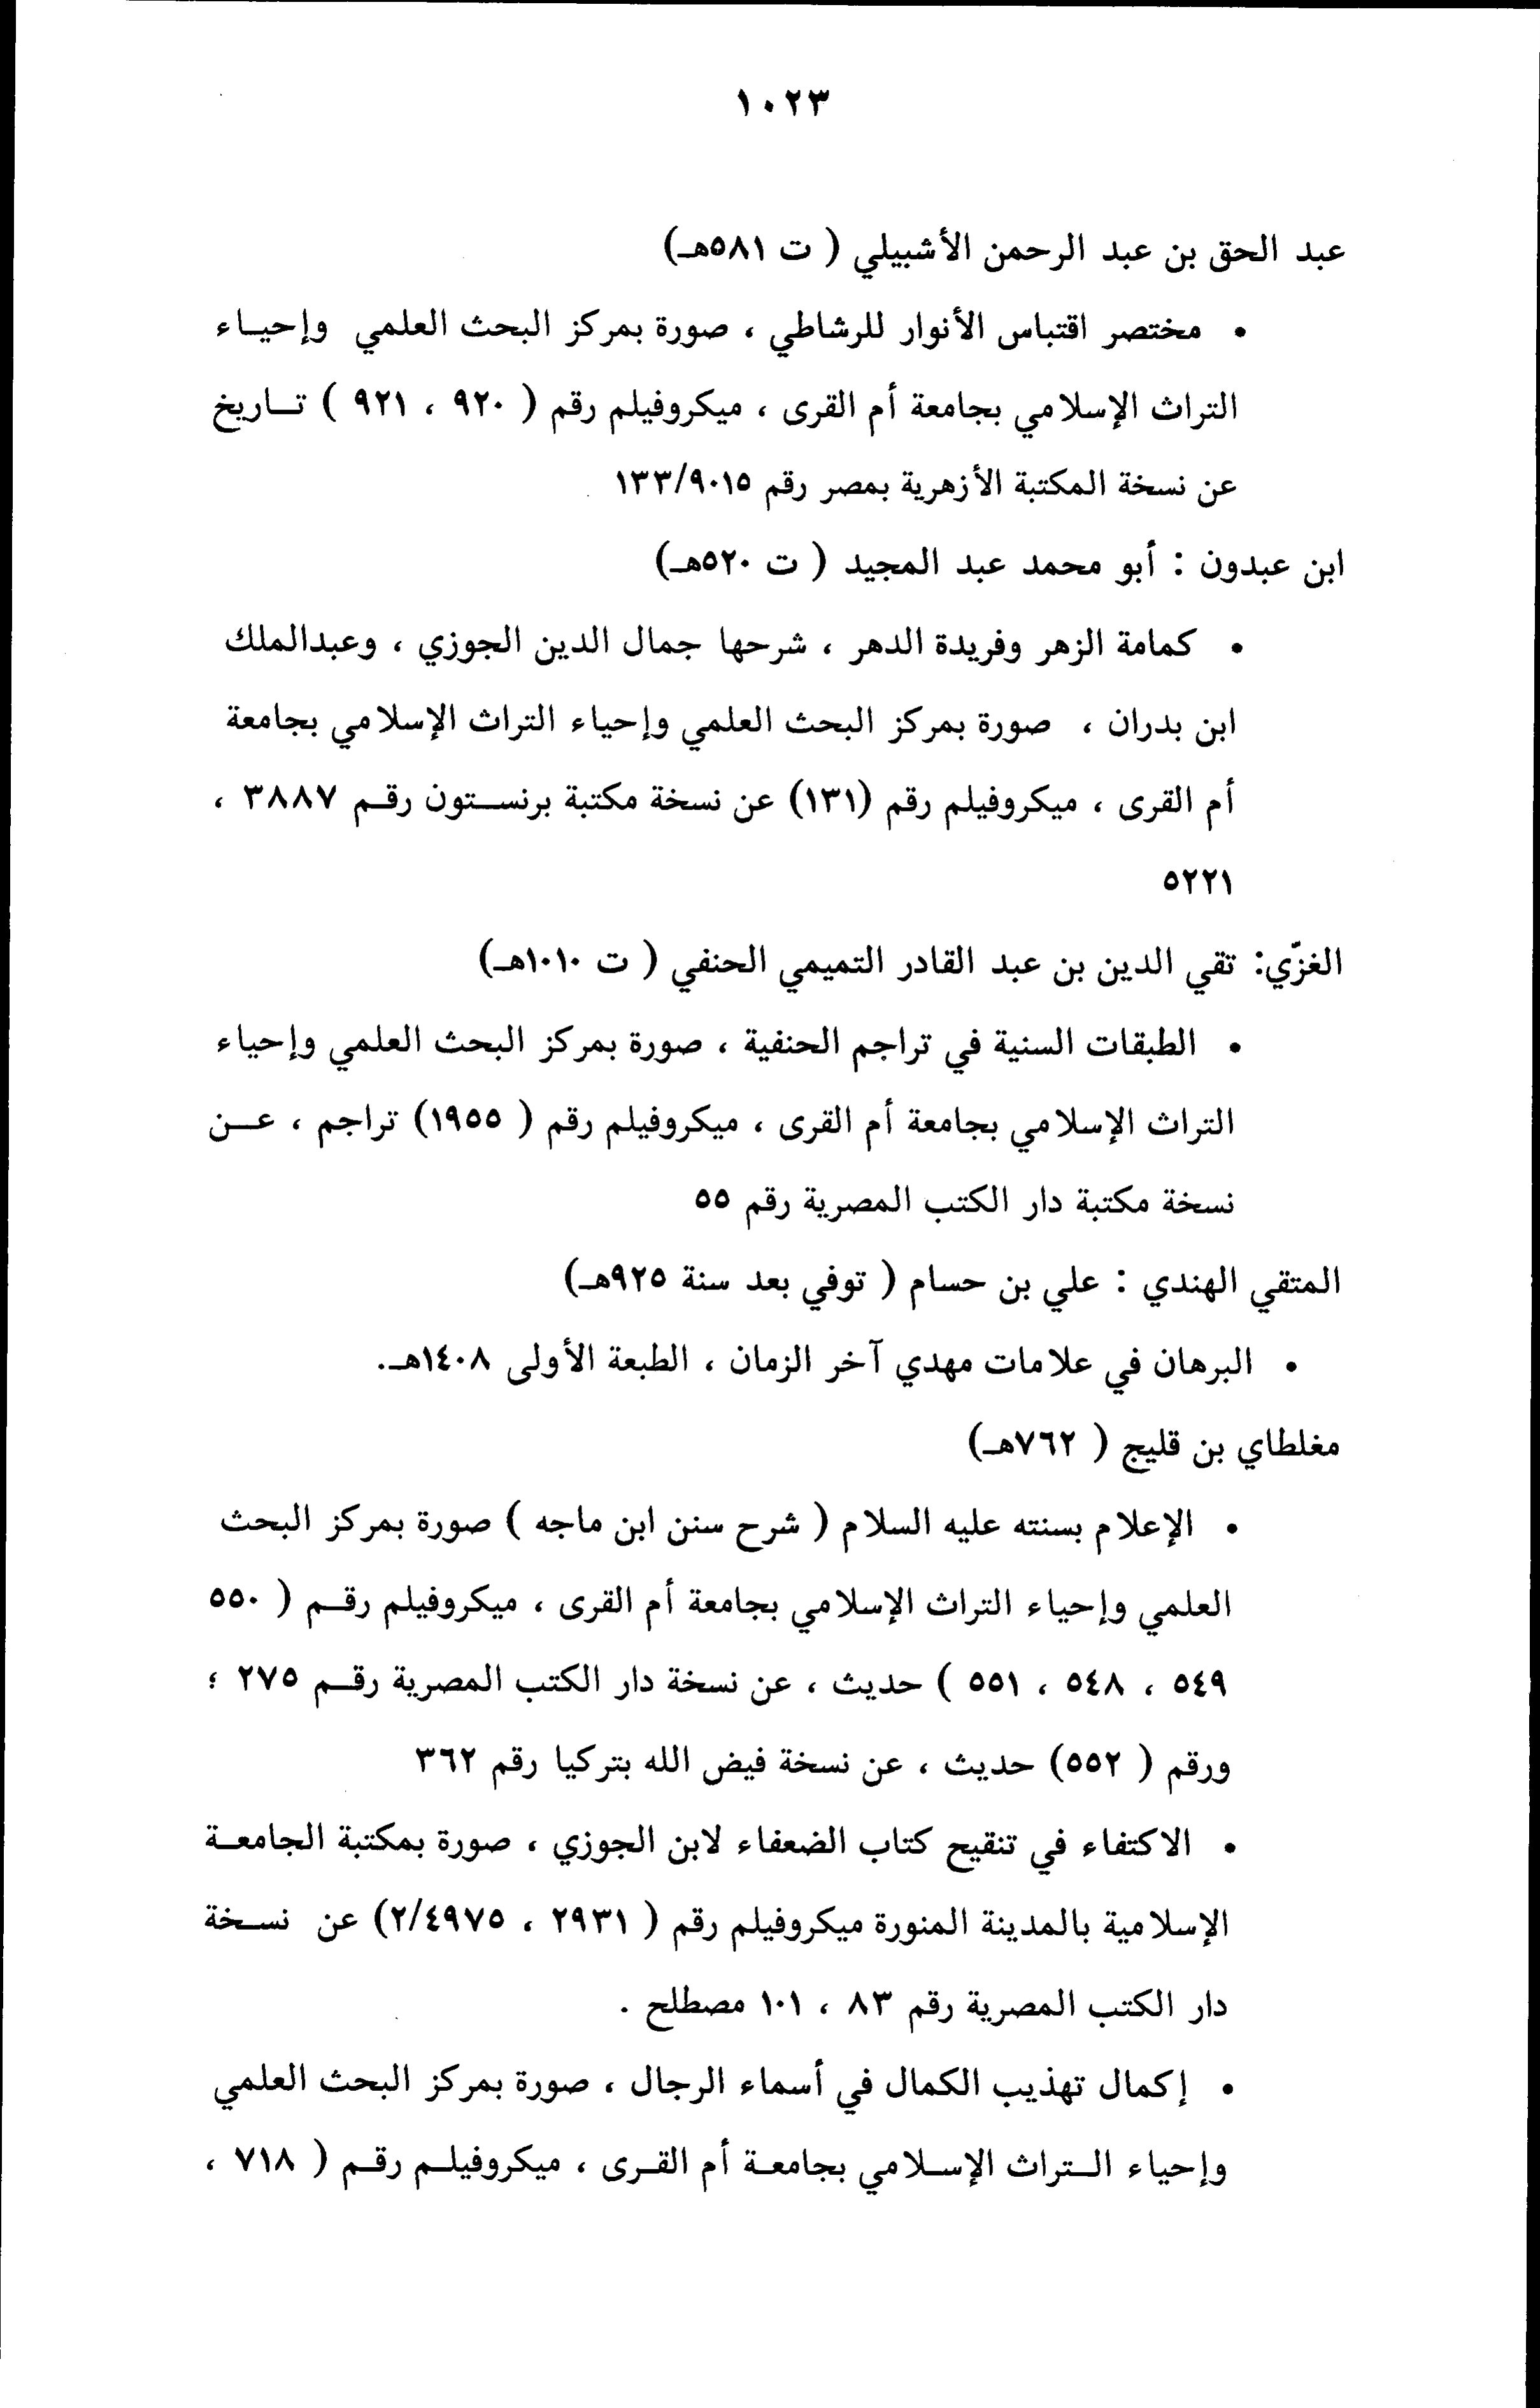 ١٠٢٣
عبد الحق بن عبد الرحمن الأشبيلي ( ت ٥٨١هـ)
• مختصر اقتباس الأنوار للرشاطي ، صورة بمركز البحث العلمي وإحياء
التراث الإسلامي بجامعة أم القرى ، ميكروفيلم رقم ( ٩٢٠ ، ٩٢١ ) تاريخ
عن نسخة المكتبة الأزهرية بمصر رقم ١٣٣/٩٠١٥
ابن عبدون : أبو محمد عبد المجيد ( ت ٥٢٠هـ)
• كمامة الزهر وفريدة الدهر ، شرحها جمال الدين الجوزي ، وعبدالملك
ابن بدران ، صورة بمركز البحث العلمي وإحياء التراث الإسلامي بجامعة
أم القرى ، ميكروفيلم رقم (١٣١) عن نسخة مكتبة برنستون رقم ٣٨٨٧ ،
٥٢٢١
الغزّي: تقي الدين بن عبد القادر التميمي الحنفي ( ت ١٠١٠هـ)
• الطبقات السنية في تراجم الحنفية ، صورة بمركز البحث العلمي وإحياء
التراث الإسلامي بجامعة أم القرى ، ميكروفيلم رقم ( ١٩٥٥) تراجم ، عن
نسخة مكتبة دار الكتب المصرية رقم ٥٥
المتقي الهندي : علي بن حسام ( توفي بعد سنة ٩٢٥هـ)
• البرهان في علامات مهدي آخر الزمان ، الطبعة الأولى ١٤٠٨هـ.
مغلطاي بن قليج ( ٧٦٢هـ)
• الإعلام بسنته عليه السلام ( شرح سنن ابن ماجه ) صورة بمركز البحث
العلمي وإحياء التراث الإسلامي بجامعة أم القرى ، ميكروفيلم رقم ( ٥٥٠
٥٤٩ ، ٥٤٨ ، ٥٥١ ) حديث ، عن نسخة دار الكتب المصرية رقم ٢٧٥ ؛
ورقم ( ٥٥٢) حديث ، عن نسخة فيض الله بتركيا رقم ٣٦٢
• الاكتفاء في تنقيح كتاب الضعفاء لابن الجوزي ، صورة بمكتبة الجامعة
الإسلامية بالمدينة المنورة ميكروفيلم رقم ( ٢٩٣١ ، ٢/٤٩٧٥) عن نسخة
دار الكتب المصرية رقم ٨٣ ، ١٠١ مصطلح .
• إكمال تهذيب الكمال في أسماء الرجال ، صورة بمركز البحث العلمي
وإحياء التراث الإسلامي بجامعة أم القرى ، ميكروفيلم رقم ( ٧١٨ ،